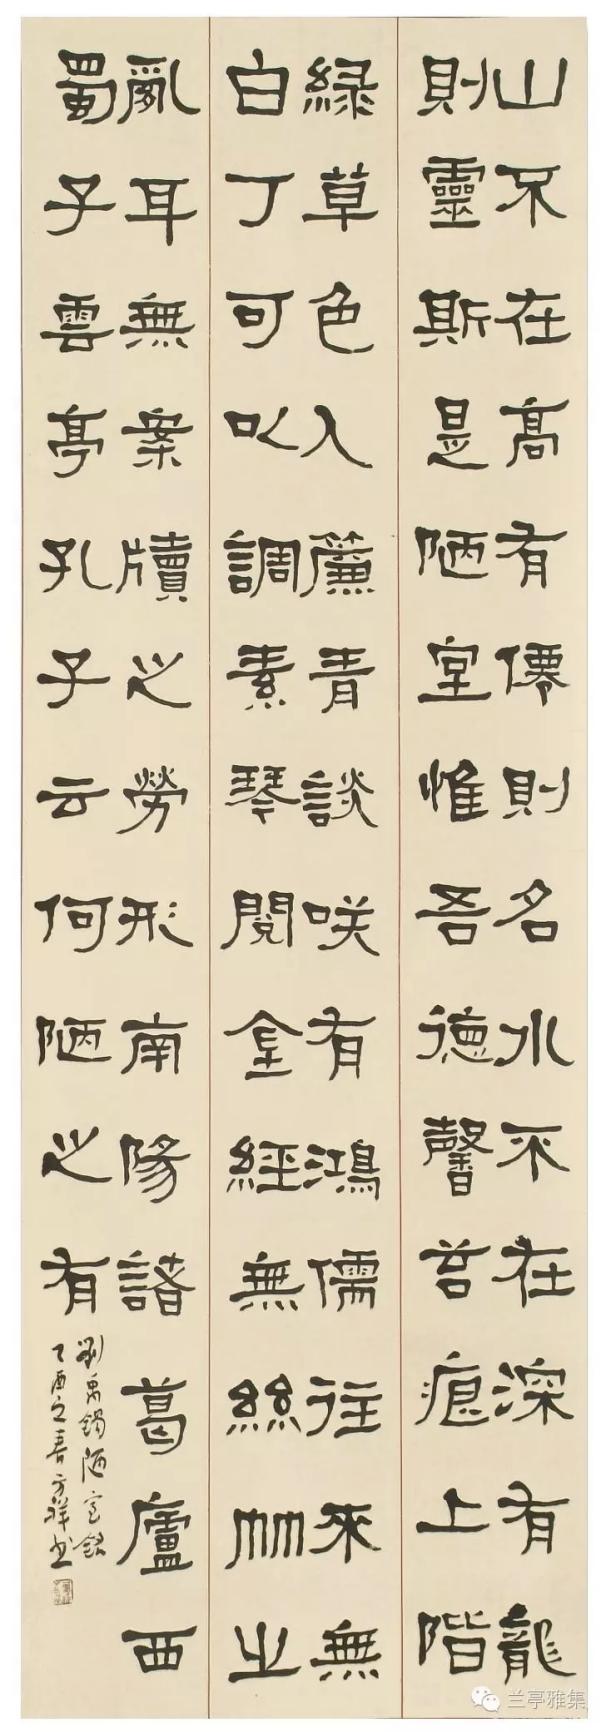 山不在高有僊則名水不在深有龍
則靈斯是陋室惟吾德馨苔痕上階
綠草色入簾青談咲有鴻儒往來無
白丁可以調素琴閱金經無絲竹之
亂耳無案牘之勞形南陽諸葛廬西
蜀子雲亭孔子云何陋之有
劉禹錫陋室銘
乙酉之春方祥書
兰亭雅集